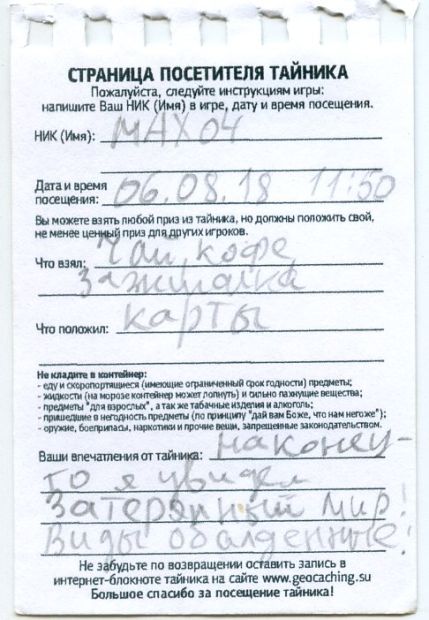 СТРАНИЦА ПОСЕТИТЕЛЯ ТАЙНИКА
Пожалуйста, следуйте инструкциям игры:
напишите Ваш НИК (Имя) в игре, дату и время посещения.
НИК (Имя): MAX04
Дата и время
посещения: 06.08.18 11:50
Вы можете взять любой приз из тайника, но должны положить свой,
не менее ценный приз для других игроков.
Что взял: Чай, кофе
Зажигалка
Что положил: карты
Не кладите в контейнер:
- еду и скоропортящиеся (имеющие ограниченный срок годности) предметы;
- жидкости (на морозе контейнер может лопнуть) и сильно пахнущие вещества;
- предметы "для взрослых", а так же табачные изделия и алкоголь;
- пришедшие в негодность предметы (по принципу "дай вам Боже, что нам негоже");
- оружие, боеприпасы, наркотики и прочие вещи, запрещенные законодательством.
Ваши впечатления от тайника: наконец-
то я увидел
Затерянный мир!
Виды обалденные!
Не забудьте по возвращении оставить запись в
интернет-блокноте тайника на сайте www.geocaching.su
Большое спасибо за посещение тайника!